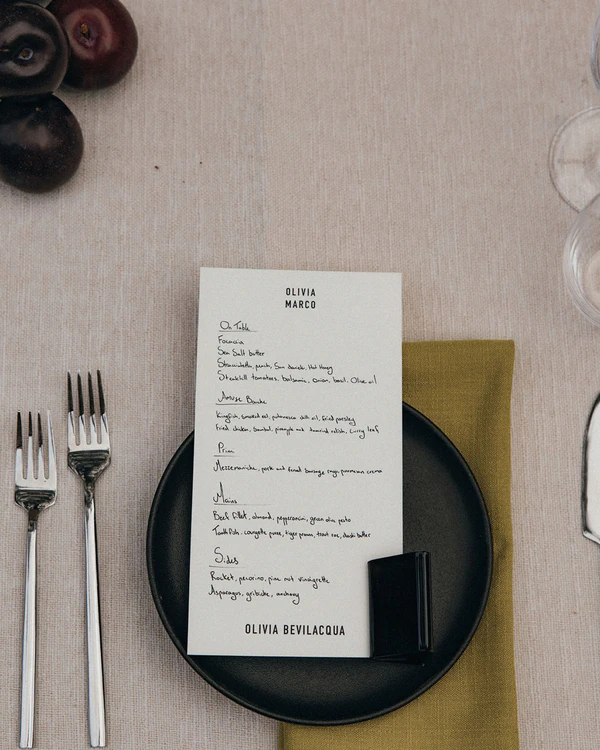 OLIVIA
MARCO
On Table
Focaccia
Sea Salt butter
Stracciatella, peach, San Daniele, Hot Honey
Steakhill tomatoes, balsamic, onion, basil, Olive oil
Amuse Bouche
Kingfish, smoked eel, chilli oil, fried parsley
Fried chicken, sambal, pineapple and tamarind relish, curry leaf
Primi
pork and fennel sausage ragu, parmesan crema
Mains
Beef fillet, almond, pepperonini, green olive pesto
Toothfish, courgette puree, tiger prawn, trout roe, dashi butter
Sides
Rocket, pecorino, pine nut vinaigrette
Asparagus, gribiche, anchovy
OLIVIA BEVILACQUA